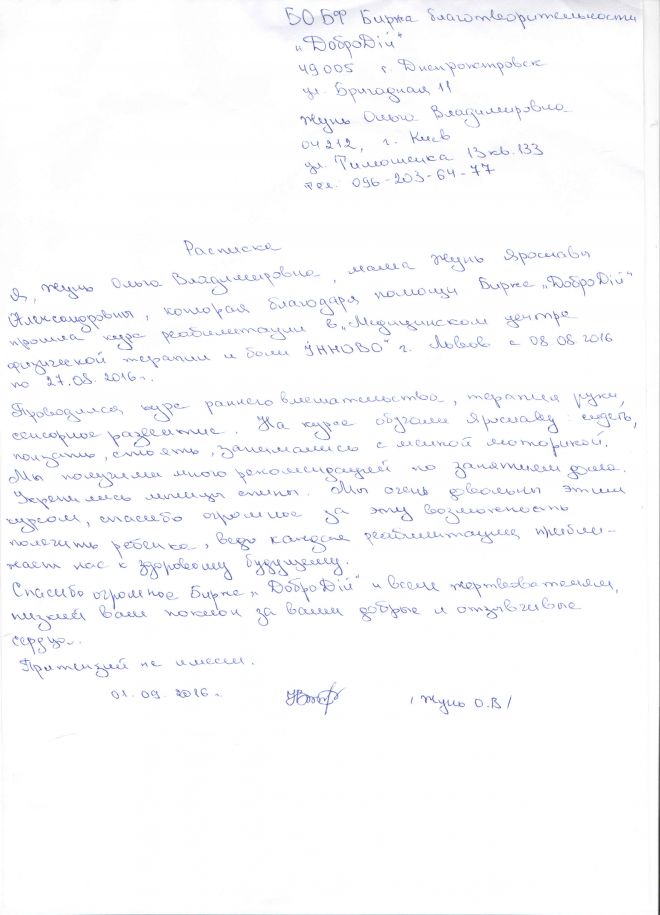 БО БФ Биржа благотворительности
„ДоброДій“
49005 г. Днепропетровск
ул. Бригадная 11
Жунь Ольга Владимировна
04212, г. Киев
ул. Тимошенка 13 кв. 133
тел. 096-203-64-77
Расписка
Я, Жунь Ольга Владимировна, мама Жунь Ярославы
Александровны, которая благодаря помощи Бирже „ДоброДій“
прошла курс реабилитации в „Медицинском центре
физической терапии и боли ІННОВО“ г. Львов с 08.08.2016
по 27.08.2016г.
Проводился курс раннего вмешательства, терапия руки,
сенсорное развитие. На курсе обучали Ярославу: сидеть,
ползать, стоять, занимались с мелкой моторикой.
Мы получили много рекомендаций по занятием дома.
Укрепились мышцы спины. Мы очень довольны этим
курсом, спасибо огромное за эту возможность
полечить ребенка, ведь каждая реабилитация прибли-
жает нас к здоровому будущему.
Спасибо огромное Бирже „ДоброДій“ и всем жертвователям,
низкий вам поклон за ваши добрые и отзывчивые
сердца..
Притензий не имеем.
01.09.2016г. /Жунь О.В/